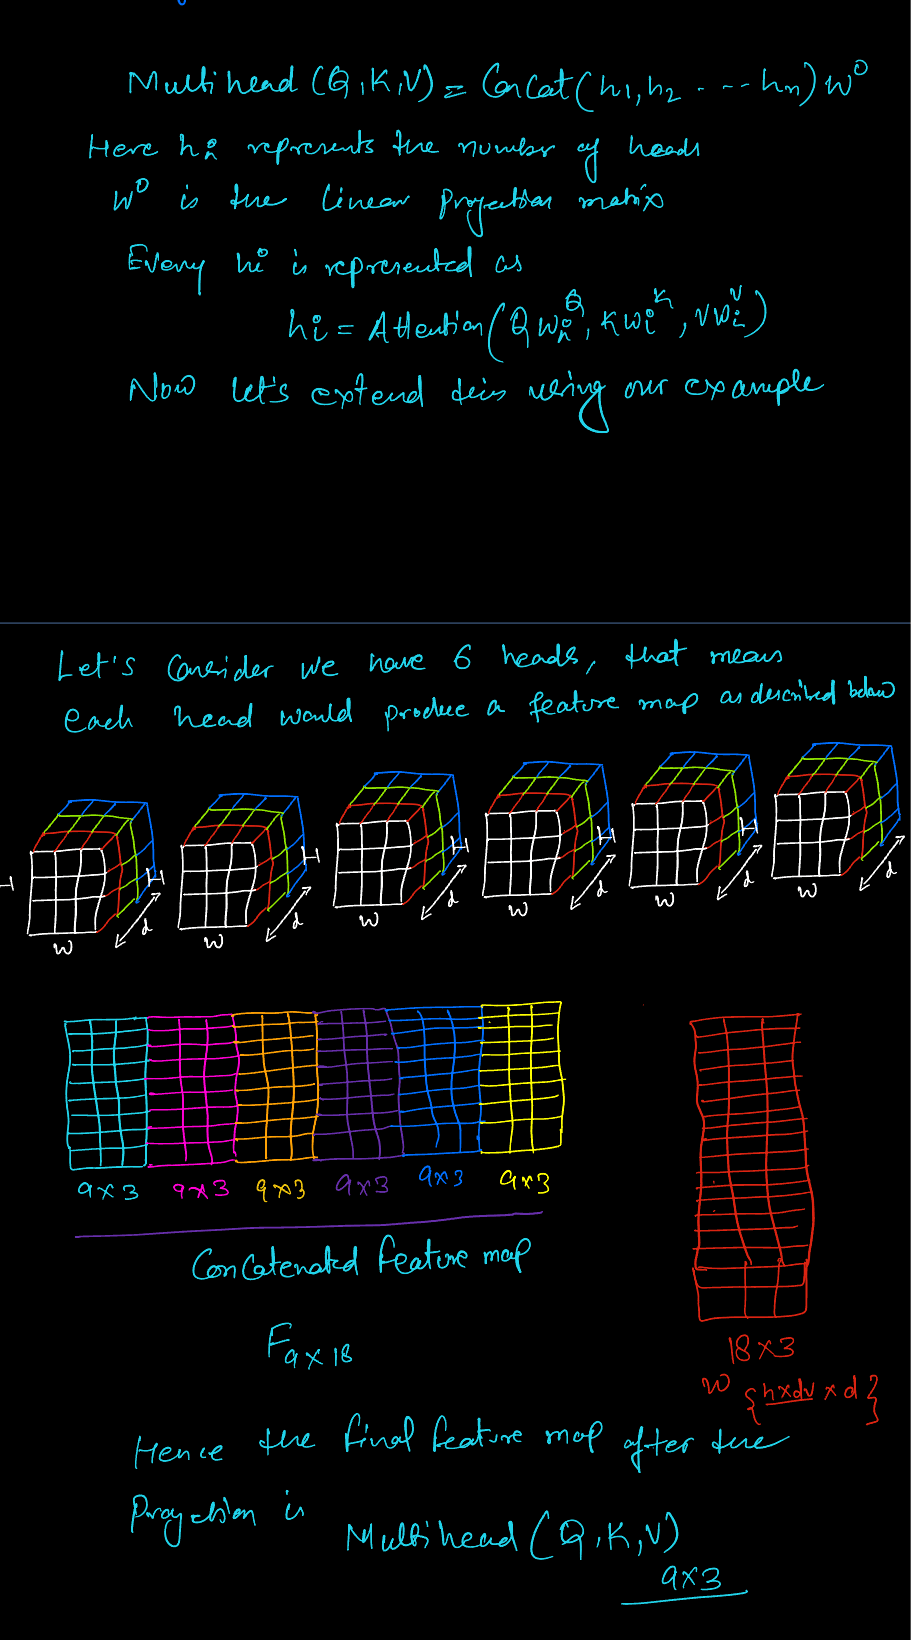 Multihead (Q,K,V) = Concat(h1,h2 - --- hn) W^O
Here hi represents the number of heads
W^O is the linear Projection matrix
Every hi is represented as
hi = Attention(QWi^Q, KWi^K, VWi^V)
Now let's extend this using our example
Let's Consider we have 6 heads, that means
each head would produce a feature map as described below
H H W d H W d H W d H W d H W d W d
9x3 9x3 9x3 9x3 9x3 9x3
Concatenated feature map
F9x18
18x3
W {hxdv x d}
Hence the final feature map after the
Projection is
Multihead (Q,K,V)
9x3